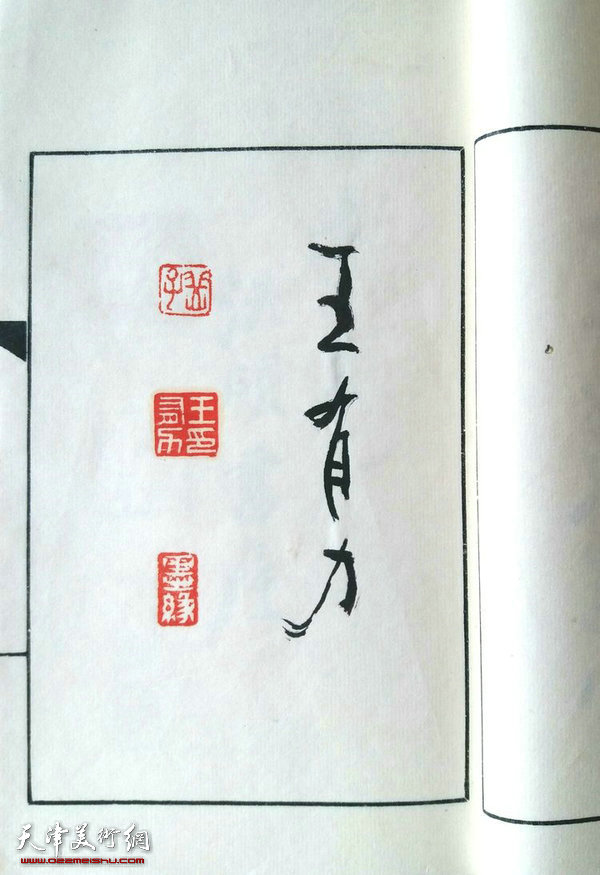 王有力
王印有力
墨缘
天津美術網
www.022meishu.com